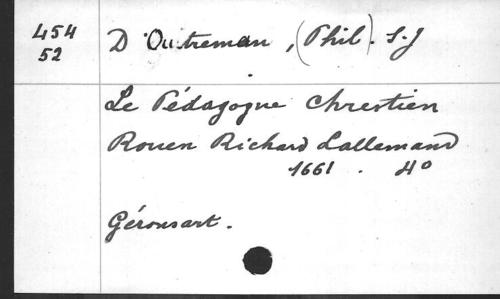 454
52
D'Outreman, (Phil). S.J
Le Pédagogue Chrestien
Rouen Richard Lallemand
1661. 4º
Géronsart.